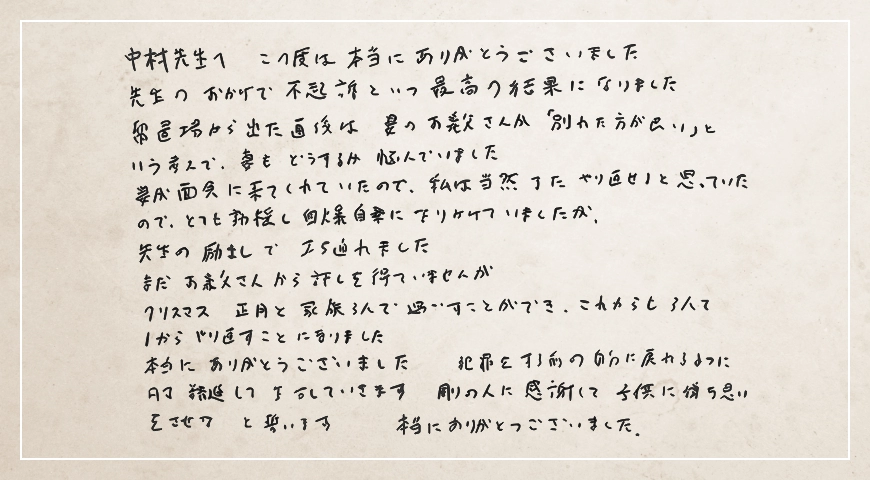 中村先生へ この度は 本当に ありがとうございました
先生の おかげで 不起訴という 最高の結果に なりました
留置場から 出た直後は 妻の お義父さんが 「別れた方が良い」と
いう考えで、妻も どうするか 悩んでいました
妻が 面会に来てくれていたので、私は当然 また やり直せると思っていた
ので、とても動揺し 自暴自棄に なりかけていましたが、
先生の 励ましで 立ち直れました
まだ お義父さんから 許しを得ていませんが
クリスマス 正月と 家族3人で 過ごすことができ、これからも 3人で
1から やり直すことになりました
本当に ありがとうございました 犯罪をする前の自分に戻れるように
日々 精進して 生活していきます 周りの人に 感謝して 子供に
と誓います 本当にありがとうございました。